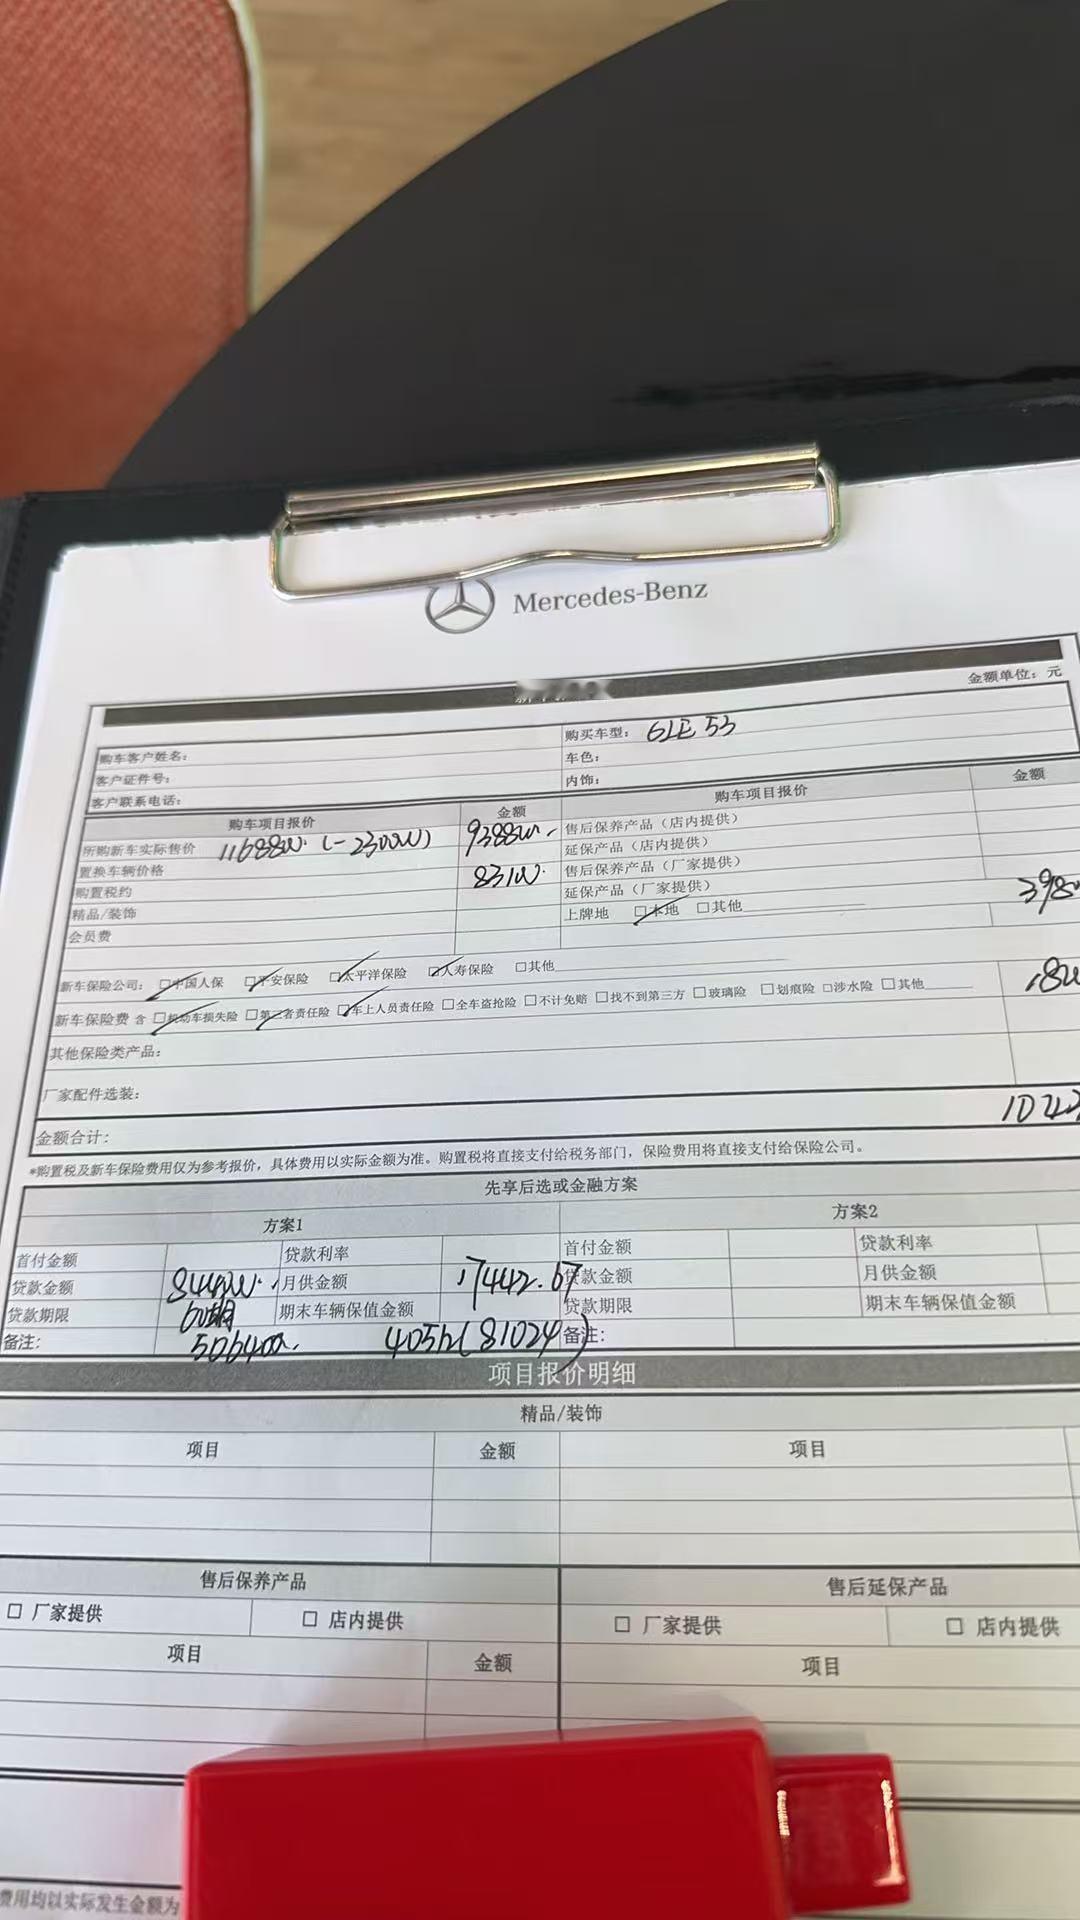 Mercedes-Benz
金额单位：元
购车客户姓名：
购买车型： GLE 53
客户证件号：
车色：
客户联系电话：
内饰：
购车项目报价
金额
购车项目报价
金额
所购新车实际售价
售后保养产品（店内提供）
置换车辆价格
延保产品（店内提供）
购置税约
售后保养产品（厂家提供）
精品/装饰
延保产品（厂家提供）
会员费
上牌地 □本地 □其他
新车保险公司： □中国人保 □平安保险 □太平洋保险 □人寿保险 □其他
新车保险费 含 □机动车损失险 □第三者责任险 □车上人员责任险 □全车盗抢险 □不计免赔 □找不到第三方 □玻璃险 □划痕险 □涉水险 □其他
其他保险类产品：
厂家配件选装：
金额合计：
*购置税及新车保险费用仅为参考报价，具体费用以实际金额为准。购置税将直接支付给税务部门，保险费用将直接支付给保险公司。
先享后选或金融方案
方案1
方案2
首付金额
贷款利率
首付金额
贷款利率
贷款金额
月供金额 17442.67
贷款金额
月供金额
贷款期限 60期
期末车辆保值金额
贷款期限
期末车辆保值金额
备注：
备注：
项目报价明细
精品/装饰
项目
金额
项目
售后保养产品
售后延保产品
□ 厂家提供
□ 店内提供
□ 厂家提供
□ 店内提供
项目
金额
项目
费用均以实际发生金额为